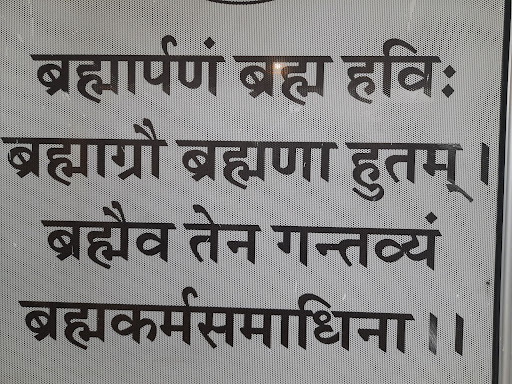 ब्रह्मार्पणं ब्रह्म हविः
ब्रह्माग्रौ ब्रह्मणा हुतम् ।
ब्रह्मैव तेन गन्तव्यं
ब्रह्मकर्मसमाधिना ।।